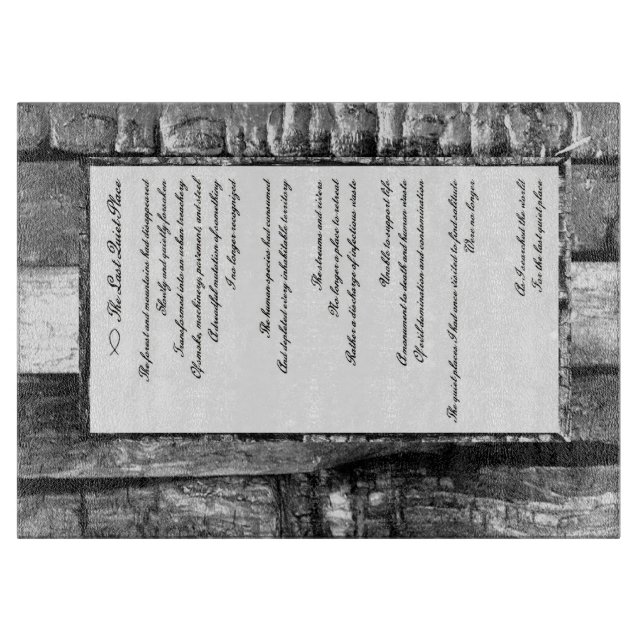 The Last Quiet Place
The forest and mountains had disappeared
Slowly and quietly forsaken
Transformed into an urban treachery
Of smoke, machinery, pavement, and steel
A dreadful mutation of something
I no longer recognized
The human species had consumed
And depleted every inhabitable territory
The streams and rivers
No longer a place to retreat
Rather a discharge of infectious waste
Unable to support life
A monument to death and human waste
Of evil domination and contamination
The quiet places I had once visited to find solitude
Were no longer
As I searched the world
For the last quiet place